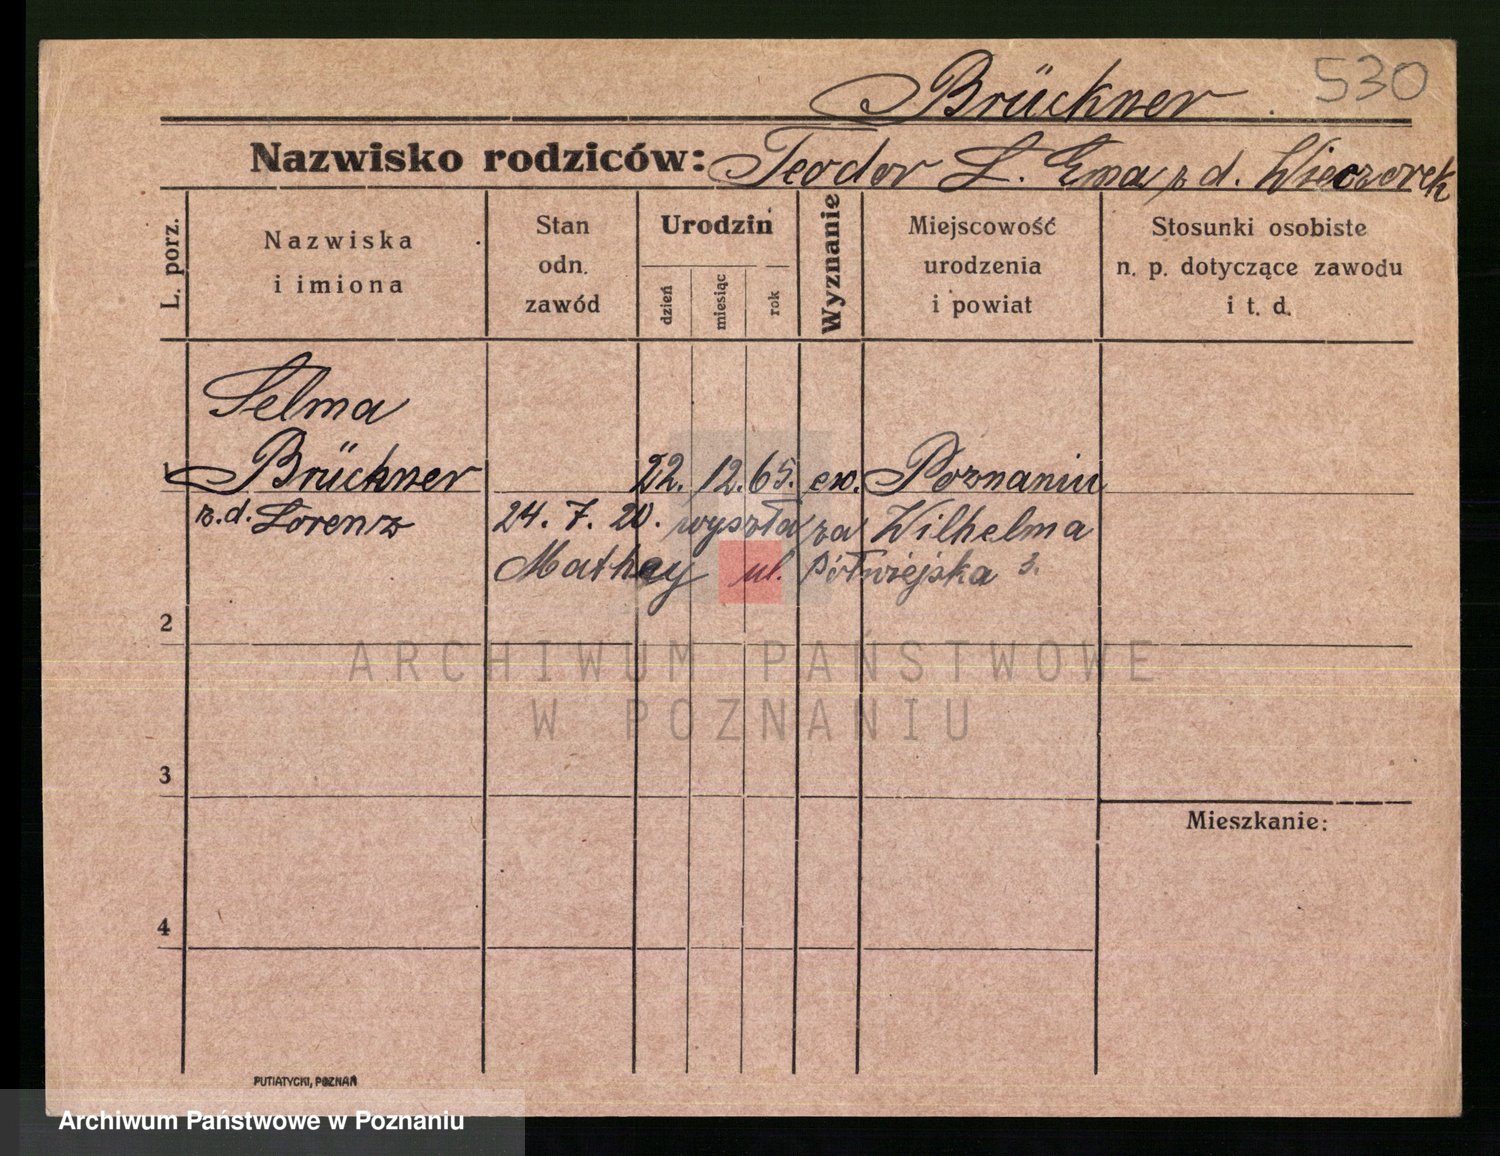 Brückner 530
Nazwisko rodziców: Teodor L. Ewa z d. Wieczorek
L. porz.
Nazwiska
i imiona
Stan
odn.
zawód
Urodzin
dzień
miesiąc
rok
Wyznanie
Miejscowość
urodzenia
i powiat
Stosunki osobiste
n. p. dotyczące zawodu
i t. d.
Selma
1 Brückner 22. 12. 65. ew. Poznaniu
z.d. Lorenz 24. 7. 20. wyszła za Wilhelma
Mathey ul. Półwiejska 3.
2
ARCHIWUM PAŃSTWOWE
W POZNANIU
3
Mieszkanie:
4
PUTIATYCKI, POZNAŃ
Archiwum Państwowe w Poznaniu